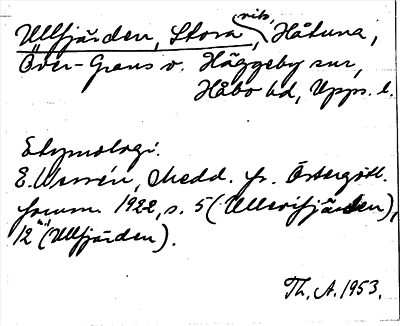 Ullfjärden, Stora vik, Håtuna,
Över-Grans o. Häggeby snr,
Håbo hd, Upps. l.
Etymologi.
E. Wessén, Medd. fr. Östergötl.
fornm. 1922, s. 5 (Ullerisfjärden),
12 (Ullfjärden).
Th. A. 1953.